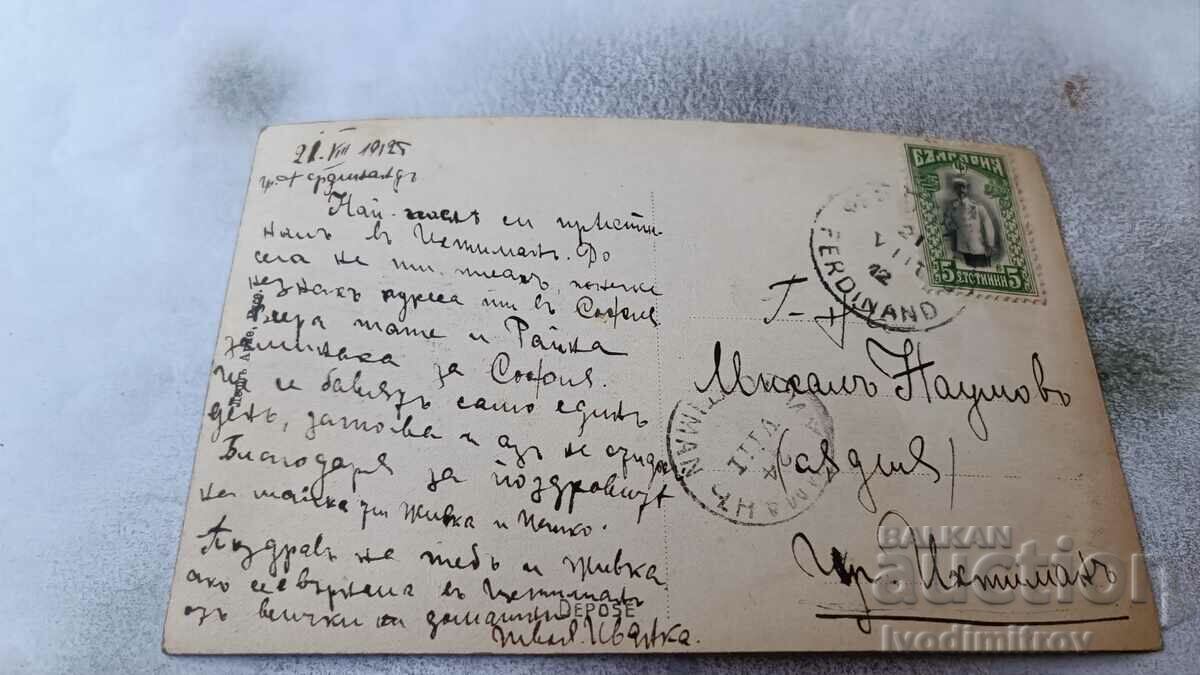 21. VIII 1912
гр. Фердинандъ
Най-послѣ си присти-
налъ въ Ихтиманъ. До
сега не ти писахъ, понеже
незнаехъ адреса ти въ София
Вчера тате и Райна
заминаха за София.
Ще се бавятъ само единъ
день, затова и азъ не отидохъ
Благодаря за поздравитѣ
на майка ти Живка и
Поздравъ на тебъ и Живка
ако се е върнала въ Ихтиманъ
отъ всички ни домашни
Твоя Иванка.
DEPOSE
БЪЛГАРИЯ
5 СТОТИНКИ 5
FERDINAND
21 VIII 12
Г-нъ
Михаилъ Наумовъ
(сѫдия)
гр. Ихтиманъ
ИХТИМАНЪ
VIII
BALKAN
auction
Ivodimitrov